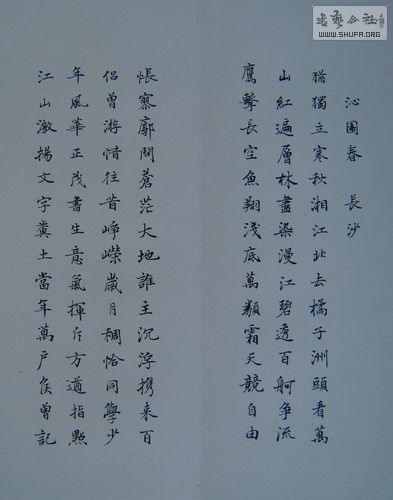 书艺公社
WWW.SHUFA.ORG
沁園春 長沙
猶獨立寒秋湘江北去橘子洲頭看萬
山紅遍層林盡染漫江碧透百舸争流
鷹擊長空魚翔淺底萬類霜天競自由
悵寥廓問蒼茫大地誰主沉浮携来百
侣曾游惜往昔崢嶸歲月稠恰同學少
年風華正茂書生意氣揮斥方遒指點
江山激揚文字糞土當年萬户侯曾記